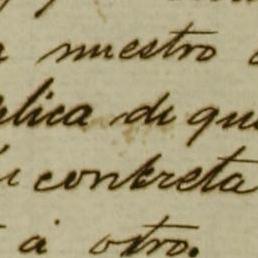 nuestro
plica de que
contreta
á otro.